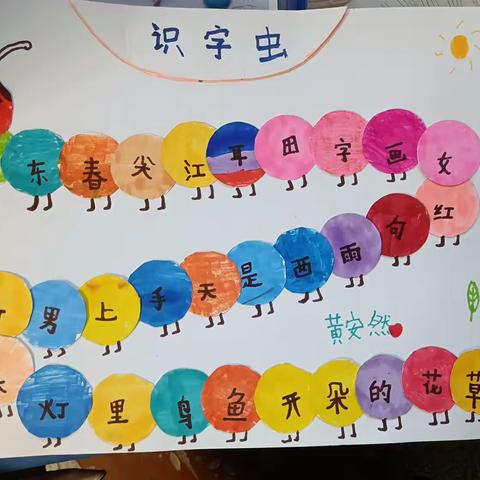 识字虫
东春尖江耳田字画女
男上手天是西雨句红
黄安然
灯里鸟鱼开朵的花草